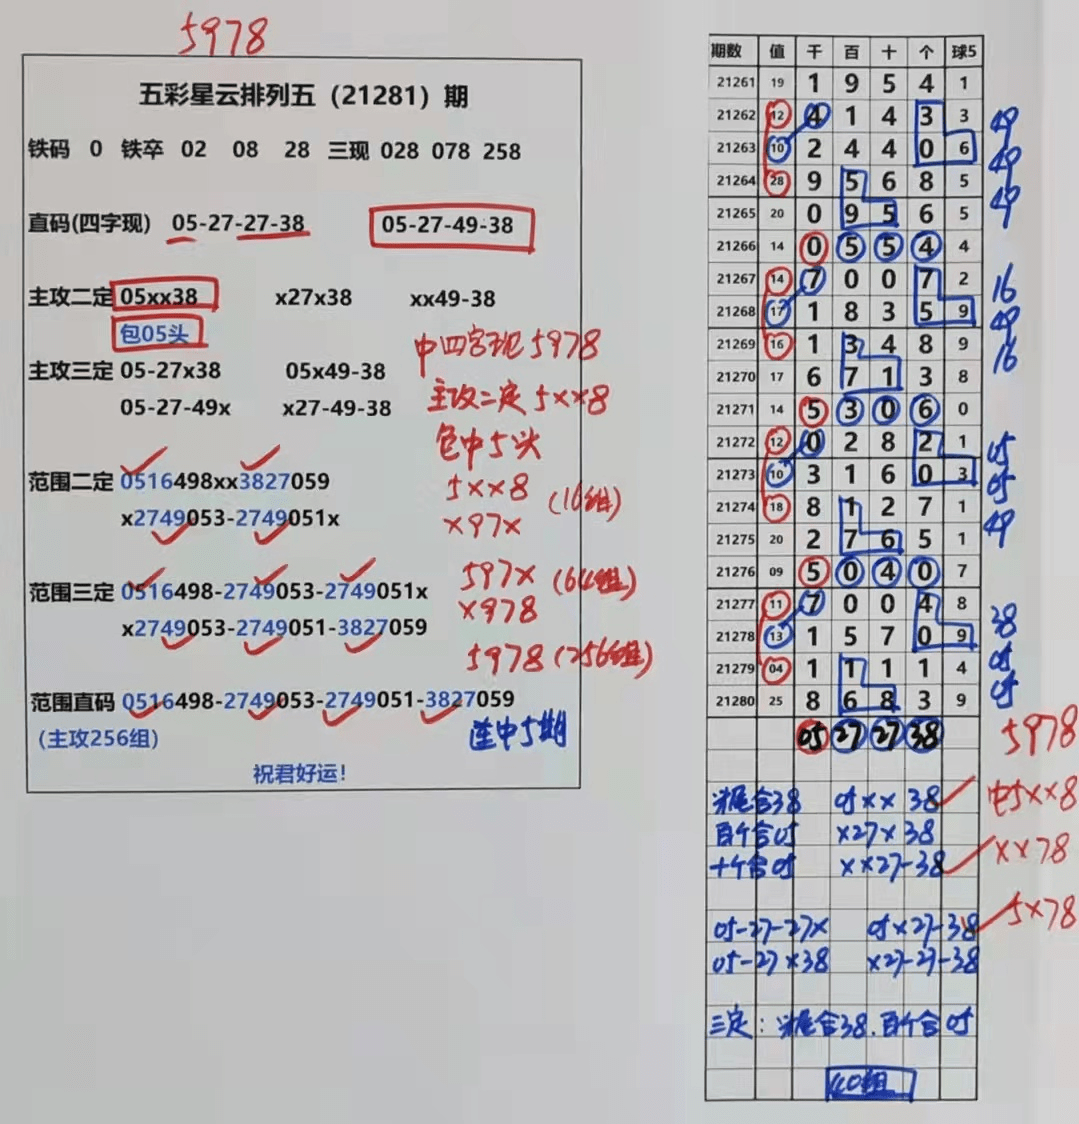 5978
五彩星云排列五（21281）期
铁码 0 铁卒 02 08 28 三现 028 078 258
直码(四字现) 05-27-27-38 05-27-49-38
主攻二定 05xx38 x27x38 xx49-38
包05头
中四字现5978
主攻三定 05-27x38 05x49-38
主攻二定5xx8
05-27-49x x27-49-38
包中5头
范围二定 0516498xx3827059
5xx8 (16组)
x2749053-2749051x
x97x
范围三定 0516498-2749053-2749051x
597x (64组)
x2749053-2749051-3827059
x978
5978 (256组)
范围直码 0516498-2749053-2749051-3827059
（主攻256组）
连中5期
祝君好运！
期数 值 千 百 十 个 球5
21261 19 1 9 5 4 1
21262 12 4 1 4 3 3 49
21263 10 2 4 4 0 6 49
21264 28 9 5 6 8 5 49
21265 20 0 9 5 6 5
21266 14 0 5 5 4 4
21267 14 7 0 0 7 2 16
21268 17 1 8 3 5 9 49
21269 16 1 3 4 8 9 16
21270 17 6 7 1 3 8
21271 14 5 3 0 6 0
21272 12 0 2 8 2 1 05
21273 10 3 1 6 0 3 05
21274 18 8 1 2 7 1 49
21275 20 2 7 6 5 1
21276 09 5 0 4 0 7
21277 11 7 0 0 4 8 38
21278 13 1 5 7 0 9 05
21279 04 1 1 1 1 4 05
21280 25 8 6 8 3 9
05 27 27 38 5978
尾合38 05xx38 中5xx8
百个合05 x27x38
十个合05 xx27-38 xx78
05-27-27x 05x27-38 5x78
05-27x38 x27-27-38
三定：尾合38.百个合05
40组